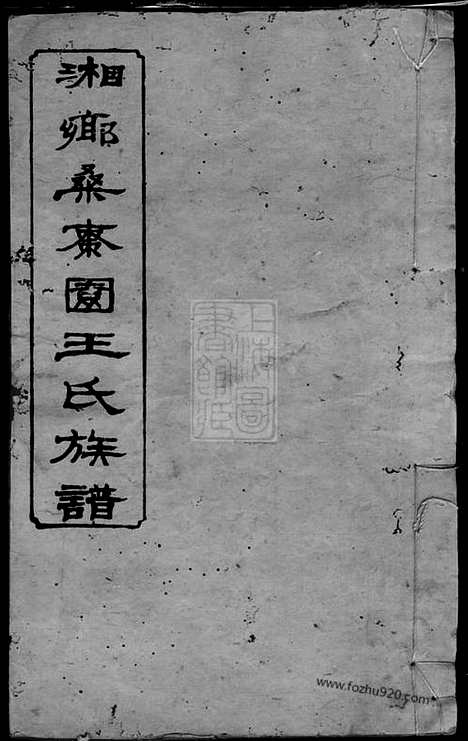 湘鄉桑棗園王氏族譜
上海圖書館藏
www.fozhu920.com